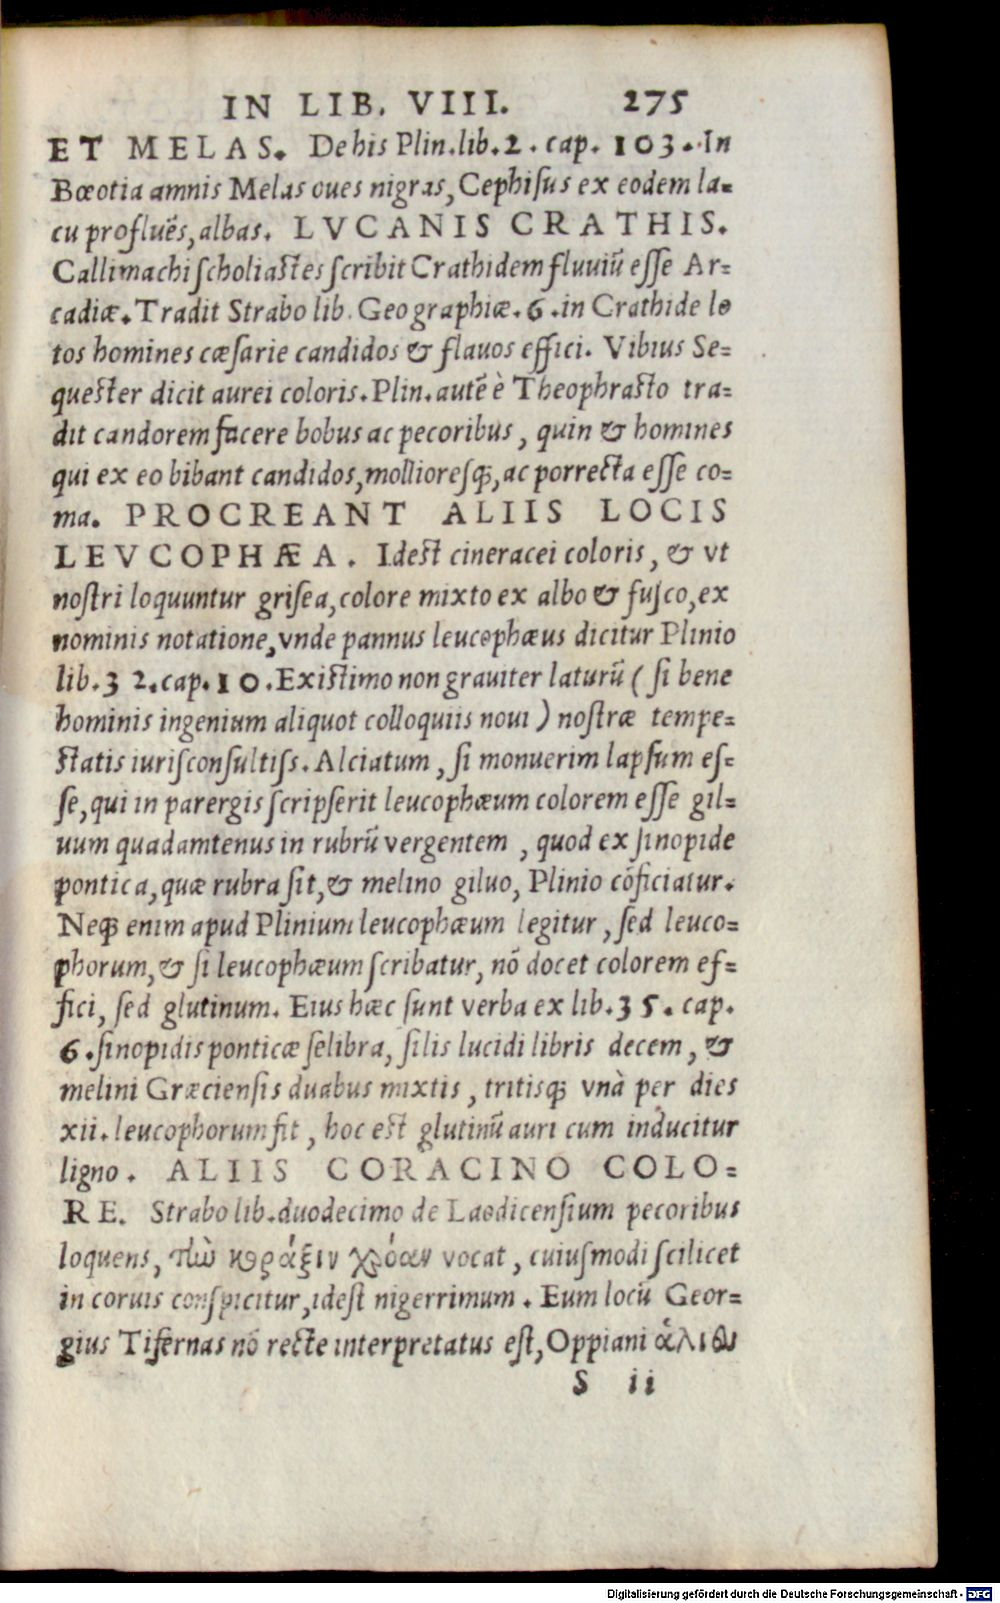 IN LIB. VIII. 275
ET MELAS. De his Plin. lib. 2. cap. 103. In
Bœotia amnis Melas oues nigras, Cephiſus ex eodem la=
cu profluẽs, albas. LVCANIS CRATHIS.
Callimachi ſcholiaſtes ſcribit Crathidem fluuiũ eſſe Ar=
cadiæ. Tradit Strabo lib. Geographiæ. 6. in Crathide lo
tos homines cæſarie candidos & flauos effici. Vibius Se=
queſter dicit aurei coloris. Plin. autẽ è Theophraſto tra=
dit candorem facere bobus ac pecoribus, quin & homines
qui ex eo bibant candidos, mollioresq;, ac porrecta eſſe co=
ma. PROCREANT ALIIS LOCIS
LEVCOPHÆA. Idest cineracei coloris, & vt
noſtri loquuntur griſea, colore mixto ex albo & fuſco, ex
nominis notatione, vnde pannus leucophæus dicitur Plinio
lib. 32. cap. 10. Exiſtimo non grauiter laturũ (ſi bene
hominis ingenium aliquot colloquiis noui) noſtræ tempe=
ſtatis iuriſconſultiſs. Alciatum, ſi monuerim lapſum eſ=
ſe, qui in parergis ſcripſerit leucophæum colorem eſſe gil=
uum quadamtenus in rubrũ vergentem, quod ex ſinopide
pontica, quæ rubra ſit, & melino giluo, Plinio cõficiatur.
Neq; enim apud Plinium leucophæum legitur, ſed leuco=
phorum, & ſi leucophæum ſcribatur, nõ docet colorem ef=
fici, ſed glutinum. Eius hæc ſunt verba ex lib. 35. cap.
6. ſinopidis ponticæ ſelibra, ſilis lucidi libris decem, &
melini Græcienſis duabus mixtis, tritisq; vnà per dies
xii. leucophorum fit, hoc eſt glutinũ auri cum inducitur
ligno. ALIIS CORACINO COLO=
RE. Strabo lib. duodecimo de Laodicenſium pecoribus
loquens, τὼ κοράξιν χρόαν vocat, cuiuſmodi ſcilicet
in coruis conſpicitur, ideſt nigerrimum. Eum locũ Geor=
gius Tifernas nõ recte interpretatus eſt, Oppiani ἁλιθυ
S ii
Digitalisierung gefördert durch die Deutsche Forschungsgemeinschaft - DFG